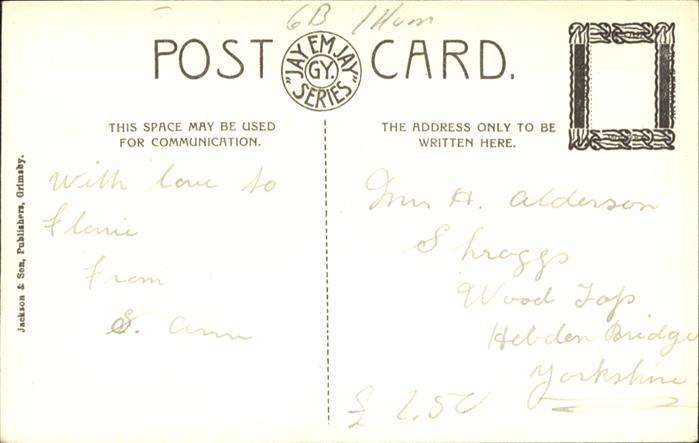 6B
POST CARD.
"JAY EM JAY" GY. SERIES
THIS SPACE MAY BE USED
FOR COMMUNICATION.
THE ADDRESS ONLY TO BE
WRITTEN HERE.
Jackson & Son, Publishers, Grimsby.
With love to
Florie
From
S. Ann
H. Alderson
Shroggs
Wood Top
Hebden Bridge
Yorkshire
£ 2.50